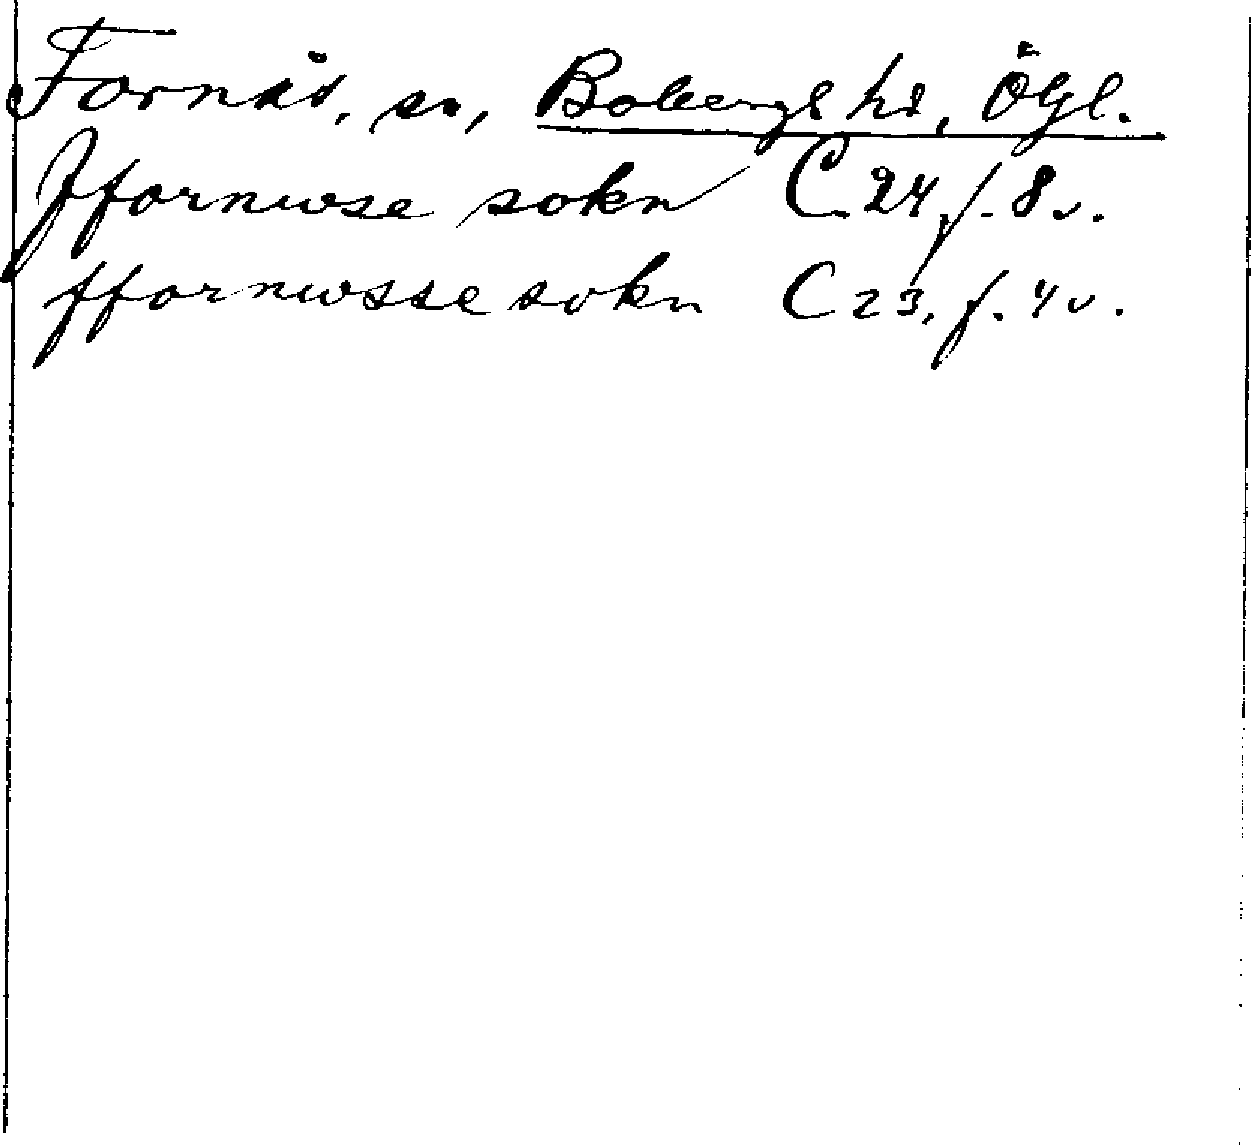 Fornås, sn, Bobergs hd, Ögl.
Ffornwse sokn C 24 f. 8v.
ffornwsse sokn C 23, f. 4v.